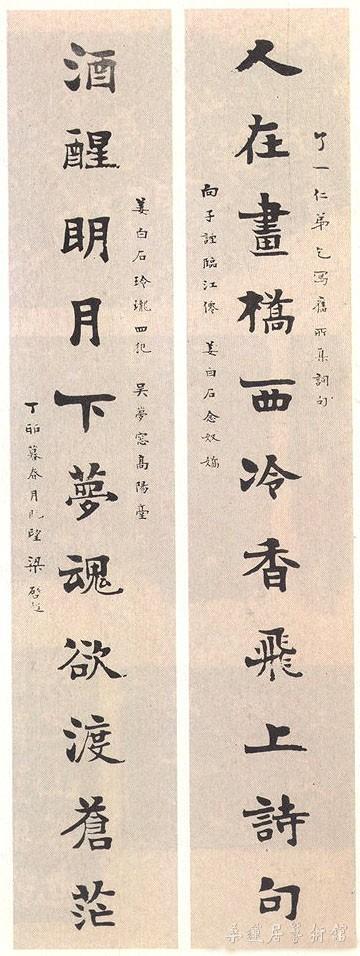 了一仁弟乞写舊所集詞句
人在畫橋西冷香飛上詩句
向子諲臨江僊 姜白石念奴嬌
姜白石玲瓏四犯 吳夢窓高陽臺
酒醒明月下夢魂欲渡蒼茫
丁卯暮春月既望 梁啓超